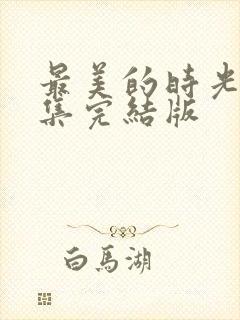 最美的時光
集完結版
白馬湖